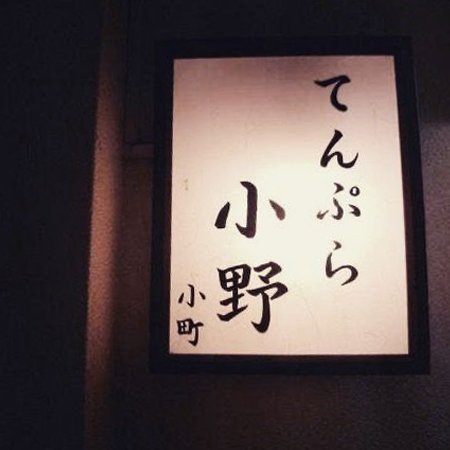 てんぷら
小野
小町